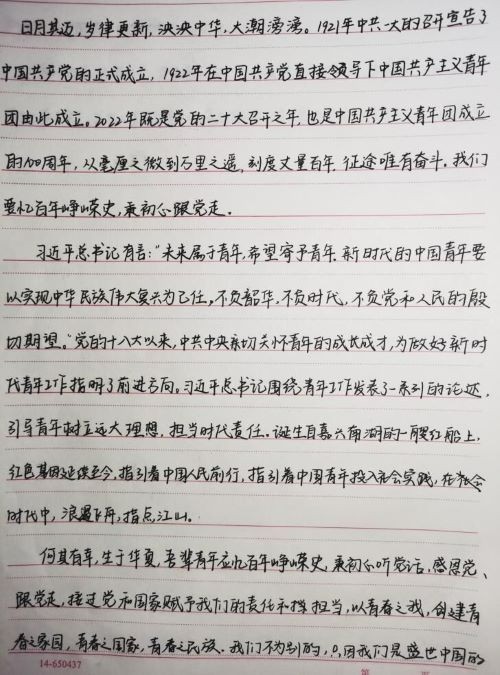 日月其迈，岁律更新，泱泱中华，大潮滂湃。1921年中共一大的召开宣告了
中国共产党的正式成立，1922年在中国共产党直接领导下中国共产主义青年
团由此成立。2022年既是党的二十大召开之年，也是中国共产主义青年团成立
的100周年，从毫厘之微到万里之遥，刻度丈量百年，征途唯有奋斗。我们
要忆百年峥嵘史，秉初心跟党走。
习近平总书记有言："未来属于青年，希望寄予青年，新时代的中国青年要
以实现中华民族伟大复兴为己任，不负韶华，不负时代，不负党和人民的殷
切期望。"党的十八大以来，中共中央亲切关怀青年的成长成才，为做好新时
代青年工作指明了前进方向。习近平总书记围绕青年工作发表了一系列的论述，
引导青年树立远大理想，担当时代责任。诞生自嘉兴南湖的一艘红船上，
红色基因延续至今，指引着中国人民前行，指引着中国青年投入社会实践，在社会
时代中，浪遏飞舟，指点江山。
何其有幸，生于华夏，吾辈青年应忆百年峥嵘史，秉初心听党话，感恩党、
跟党走，接过党和国家赋予我们的责任和担当，以青春之我，创建青
春之家园，青春之国家，青春之民族。我们不为别的，只因我们是盛世中国的
14-650437
第 页